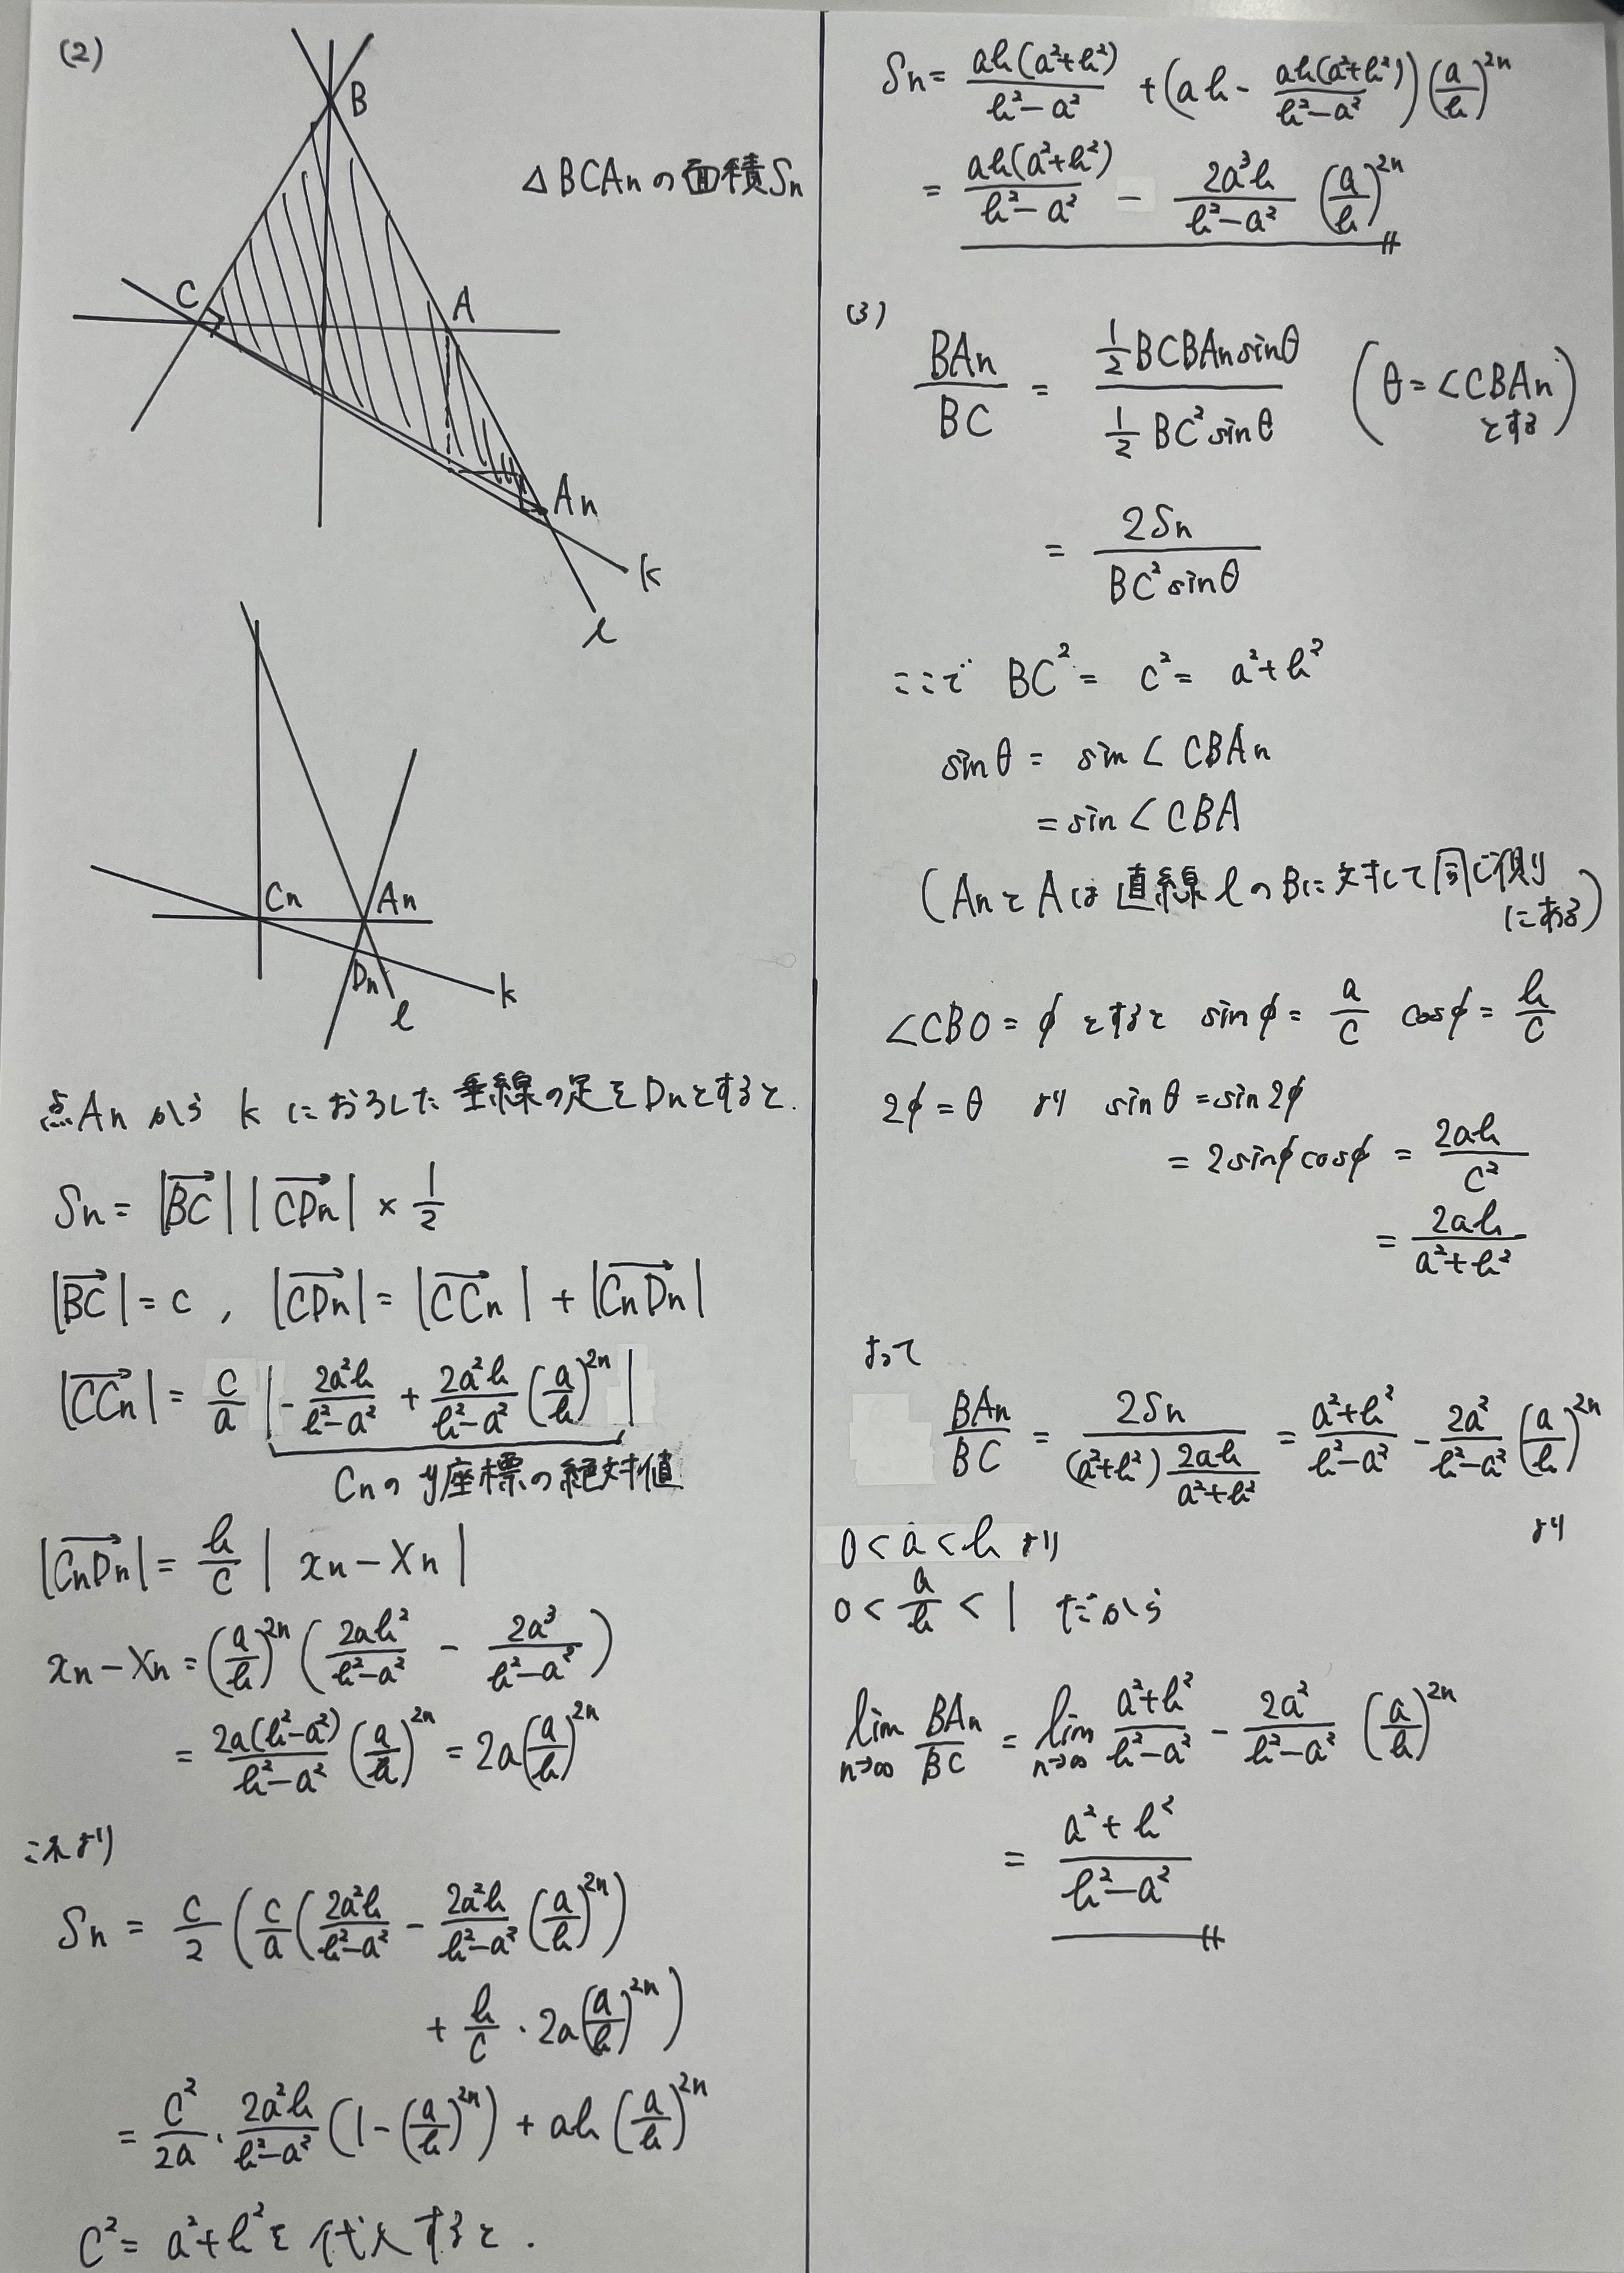 (2)
B
△BCAnの面積Sn
C
A
An
k
l
Cn
An
Dn
k
l
点Anからkにおろした垂線の足をDnとすると.
Sn = |→BC| |→CDn| × 1/2
|→BC| = c , |→CDn| = |→CCn| + |→CnDn|
|→CCn| = c/a |- 2a²h/(h²-a²) + 2a²h/(h²-a²) (a/h)^2n|
Cnのy座標の絶対値
|→CnDn| = h/c | xn - Xn |
xn - Xn = (a/h)^2n (2ah²/(h²-a²) - 2a³/(h²-a²))
= 2a(h²-a²)/(h²-a²) (a/h)^2n = 2a(a/h)^2n
これより
Sn = c/2 (c/a (2a²h/(h²-a²) - 2a²h/(h²-a²) (a/h)^2n)
+ h/c · 2a(a/h)^2n)
= c²/2a · 2a²h/(h²-a²) (1-(a/h)^2n) + ah (a/h)^2n
c² = a²+h² を代入すると.
Sn = ah(a²+h²)/(h²-a²) + (ah - ah(a²+h²)/(h²-a²)) (a/h)^2n
= ah(a²+h²)/(h²-a²) - 2a³h/(h²-a²) (a/h)^2n
(3)
BAn/BC = 1/2 BCBAn sinθ / 1/2 BC² sinθ (θ = ∠CBAn
とする)
= 2Sn / BC² sinθ
ここで BC² = c² = a²+h²
sinθ = sin∠CBAn
= sin∠CBA
(AnとAは直線lのBに対して同じ側
にある)
∠CBO = φ とすると sinφ = a/c cosφ = h/c
2φ = θ より sinθ = sin2φ
= 2sinφcosφ = 2ah/c²
= 2ah/(a²+h²)
よって
BAn/BC = 2Sn/((a²+h²) 2ah/(a²+h²)) = (a²+h²)/(h²-a²) - 2a²/(h²-a²) (a/h)^2n
より
0 < a < h より
0 < a/h < 1 だから
lim n→∞ BAn/BC = lim n→∞ (a²+h²)/(h²-a²) - 2a²/(h²-a²) (a/h)^2n
= (a²+h²)/(h²-a²)